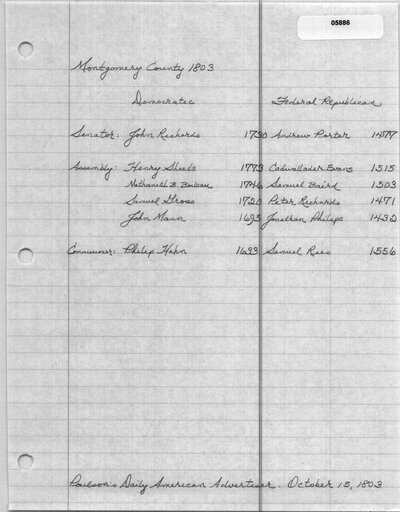 05886
Montgomery County 1803
Democratic Federal Republican
Senator: John Richards 1730 Andrew Porter 1477
Assembly: Henry Sheets 1773 Cadwallader Evans 1515
Nathaniel B. Boileau 1746 Samuel Baird 1503
Samuel Gross 1720 Peter Richards 1471
John Mann 1695 Jonathan Philips 1430
Commissioner: Philip Hahn 1633 Samuel Rees 1556
Poulson's Daily American Advertiser. October 15, 1803